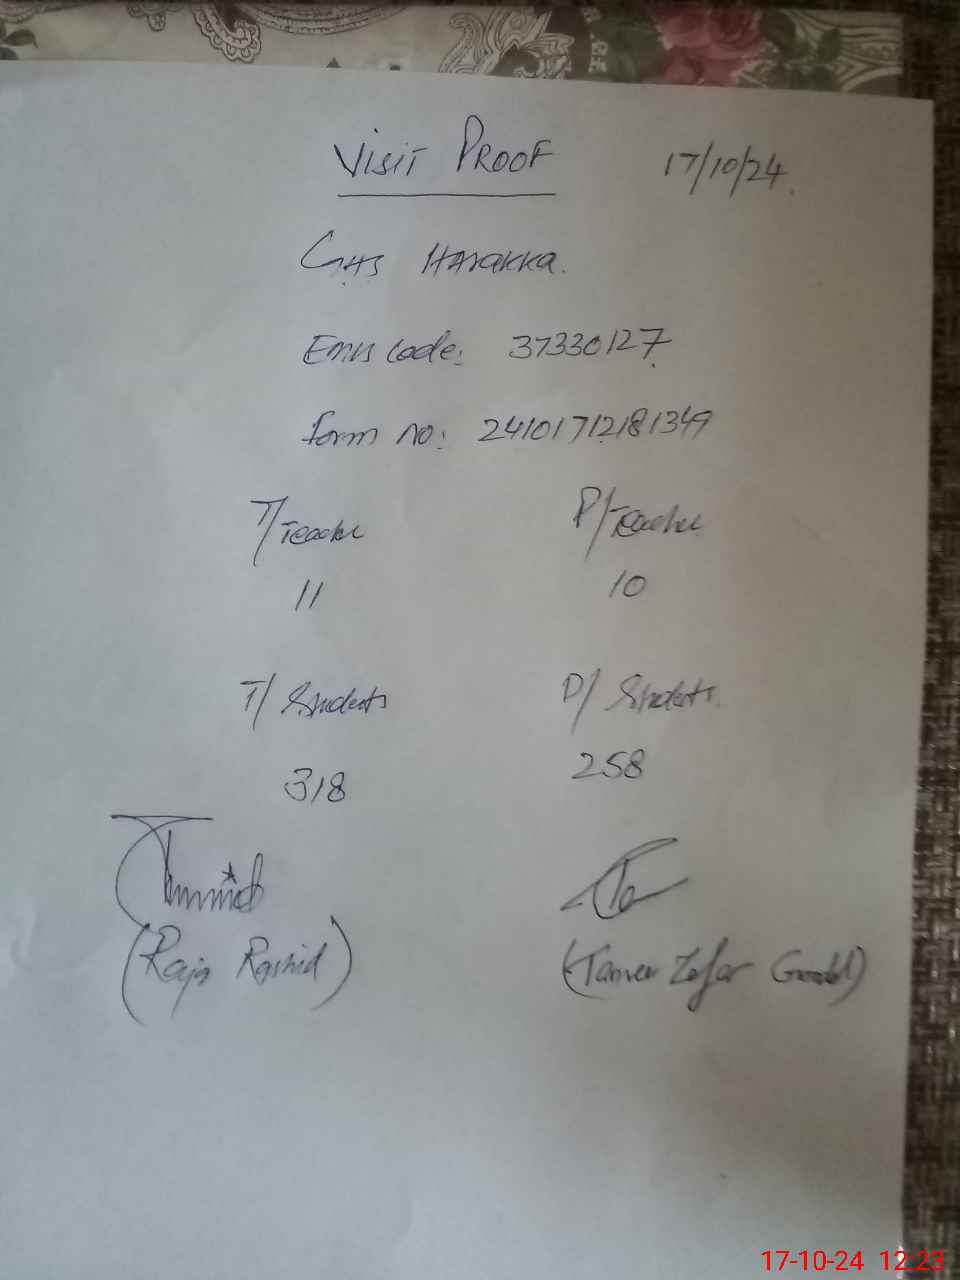 VISIT PROOF 17/10/24.
GHS Harakka.
Emis code: 37330127
Form no: 24101712181349
T/Teacher P/Teacher
11 10
T/ Students P/ Students.
318 258
(Raja Rashid) (Tanveer Zafar Gondal)
17-10-24 12:23